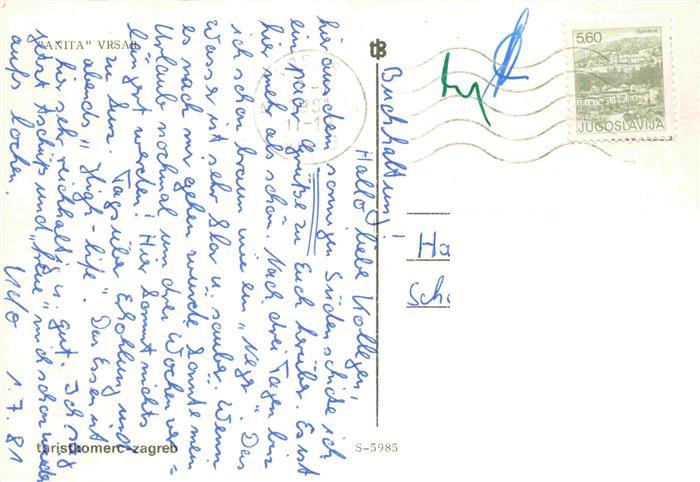 "ANITA" VRSAR
Buchhaltung!
Hallo liebe Kollegen,
hier aus dem sonnigen Süden schicke ich
ein paar Grüße zu Euch herüber. Es ist
hier mehr als schön. Nach drei Tagen bin
ich schon braun wie ein "Neger". Das
Wasser ist sehr klar u. sauber. Wenn
es nach mir gehen würde könnte mein
Urlaub nochmal um drei Wochen ver=
längert werden! Hier kommt nichts
zu kurz. Tagsüber Erholung und
abends "High-life". Das Essen ist
hier sehr reichhaltig u. gut. Ich sag
jetzt tschüß und "freue" mich schon wieder
aufs Kochen.
Udo 1.7.81
5,60
JUGOSLAVIJA
Ha
Sch
turistkomerc-zagreb
S-5985